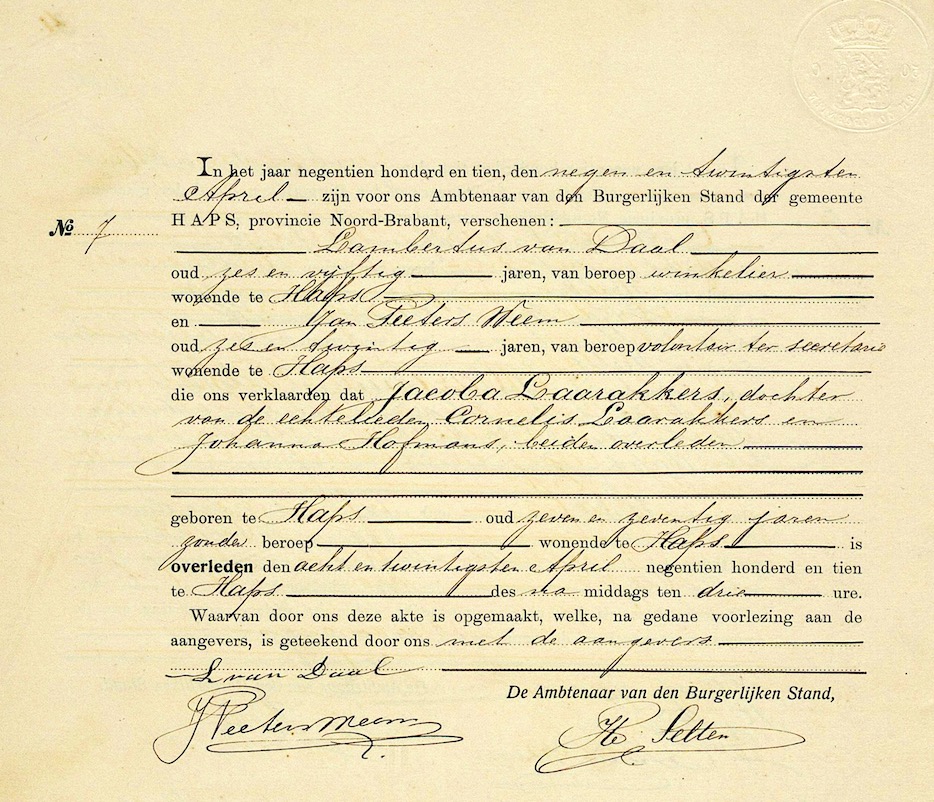 In het jaar negentien honderd en tien, den negen en twintigsten
April zijn voor ons Ambtenaar van den Burgerlijken Stand der gemeente
No 7 HAPS, provincie Noord-Brabant, verschenen:
Lambertus van Daal
oud zes en vijftig jaren, van beroep winkelier
wonende te Haps
en Jan Peeters Weem
oud zes en twintig jaren, van beroep volontair ter secretarie
wonende te Haps
die ons verklaarden dat Jacoba Laarakkers, dochter
van de echtelieden Cornelis Laarakkers en
Johanna Hofmans, beiden overleden
geboren te Haps oud zeven en zeventig jaren
zonder beroep wonende te Haps is
overleden den acht en twintigsten April negentien honderd en tien
te Haps des na middags ten drie ure.
Waarvan door ons deze akte is opgemaakt, welke, na gedane voorlezing aan de
aangevers, is geteekend door ons met de aangevers
L van Daal
De Ambtenaar van den Burgerlijken Stand,
J Peeters Weem
Selten